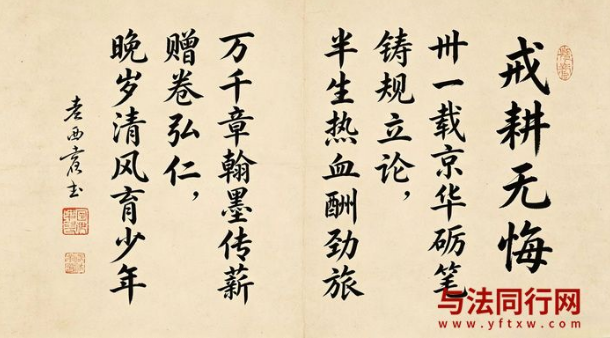 戒耕无悔
卅一载京华砺笔
铸规立论，
半生热血酬劲旅
万千章翰墨传薪
赠卷弘仁，
晚岁清风育少年
与法同行网
www.yftxw.com